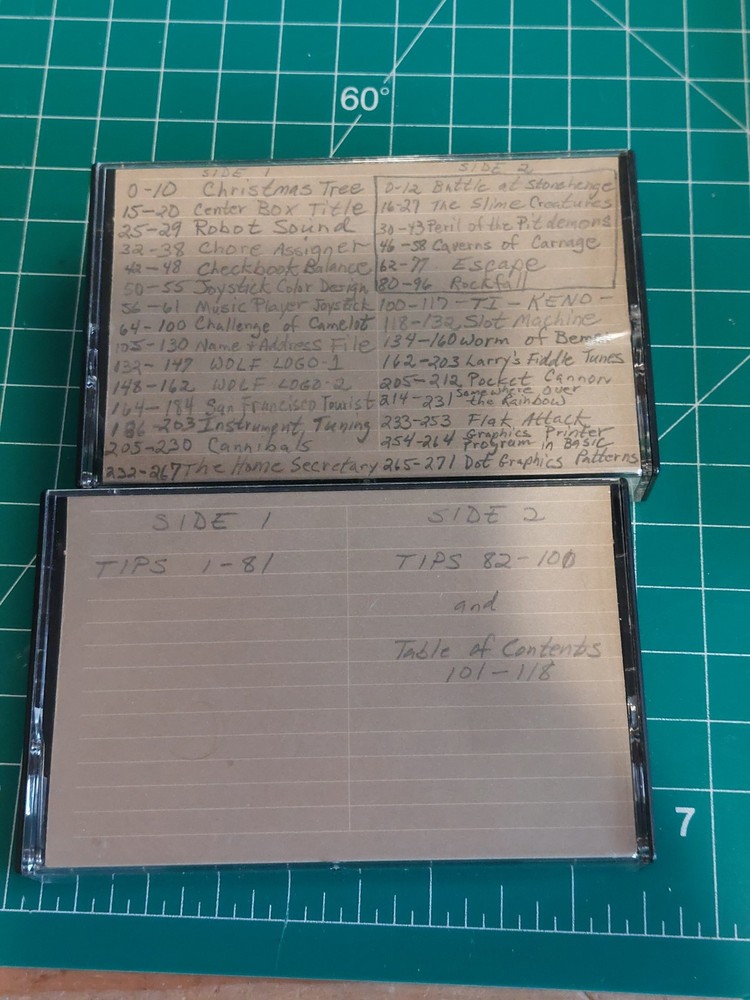 60°
SIDE 1
0-10 Christmas Tree
15-20 Center Box Title
25-29 Robot Sound
32-38 Chore Assigner
42-48 Checkbook Balance
50-55 Joystick Color Design
56-61 Music Player Joystick
64-100 Challenge of Camelot
105-130 Name + Address File
132-147 WOLF LOGO-1
148-162 WOLF LOGO-2
164-184 San Francisco Tourist
186-203 Instrument Tuning
205-230 Cannibals
232-267 The Home Secretary
SIDE 2
0-12 Battle at Stonehenge
16-27 The Slime Creatures
30-43 Peril of the Pitdemons
46-58 Caverns of Carnage
62-77 Escape
80-96 Rockfall
100-117-TI-KENO-
118-132 Slot Machine
134-160 Worm of Bemer
162-203 Larry's Fiddle Tunes
205-212 Pocket Cannon
214-231 Somewhere Over the Rainbow
233-253 Flak Attack
254-264 Graphics Printer Program in Basic
265-271 Dot Graphics Patterns
SIDE 1
TIPS 1-81
SIDE 2
TIPS 82-100
and
Table of Contents
101-118
7